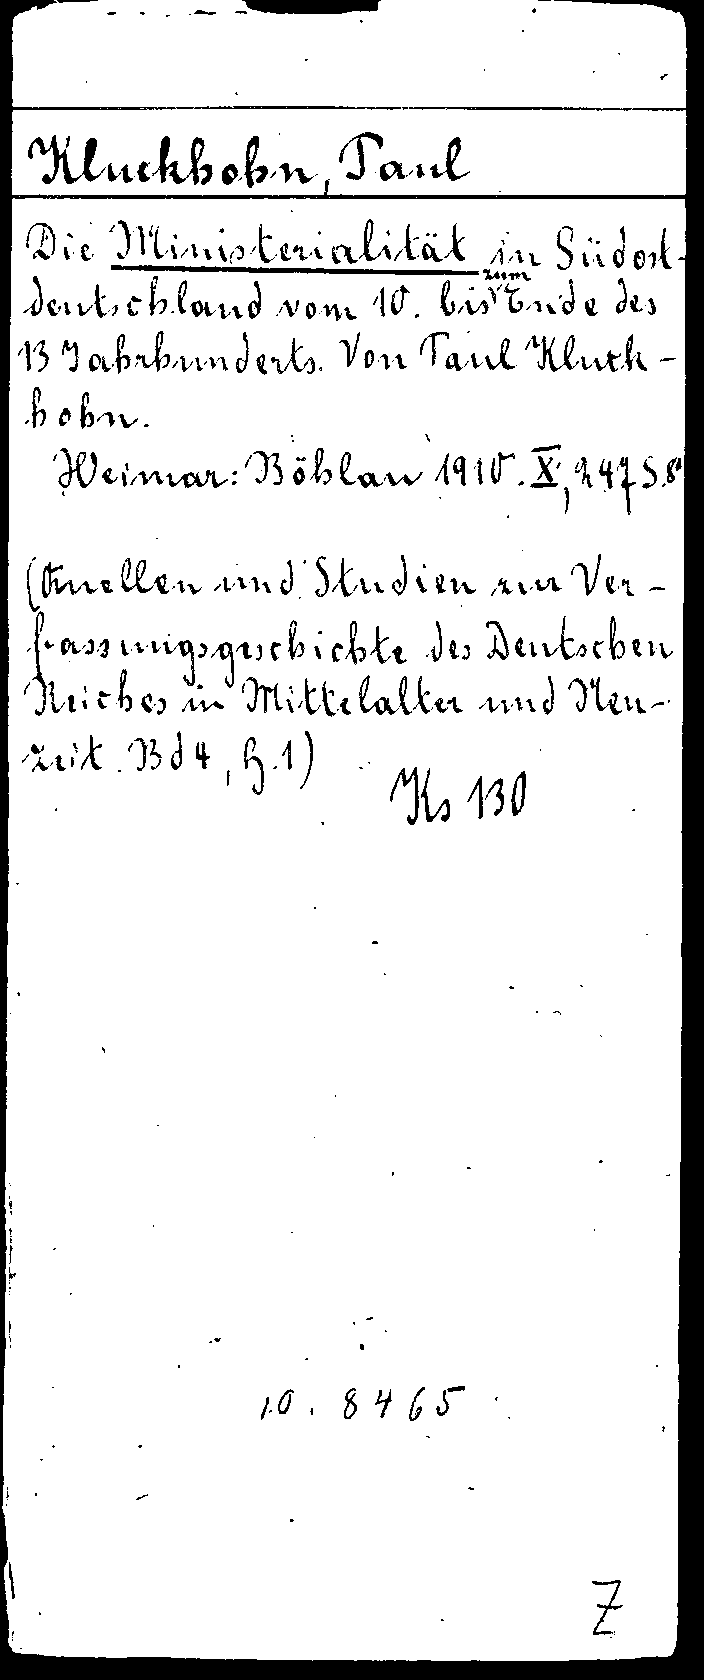 Kluckhohn, Paul
Die Ministerialität in Südost-
deutschland vom 10. bis zum Ende des
13 Jahrhunderts. Von Paul Kluck-
hohn.
Weimar: Böhlau 1910. X, 247 S. 8°
(Quellen und Studien zur Ver-
fassungsgeschichte des Deutschen
Reiches in Mittelalter und Neu-
zeit. Bd 4, H. 1)
Ks 130
10. 8465
Z